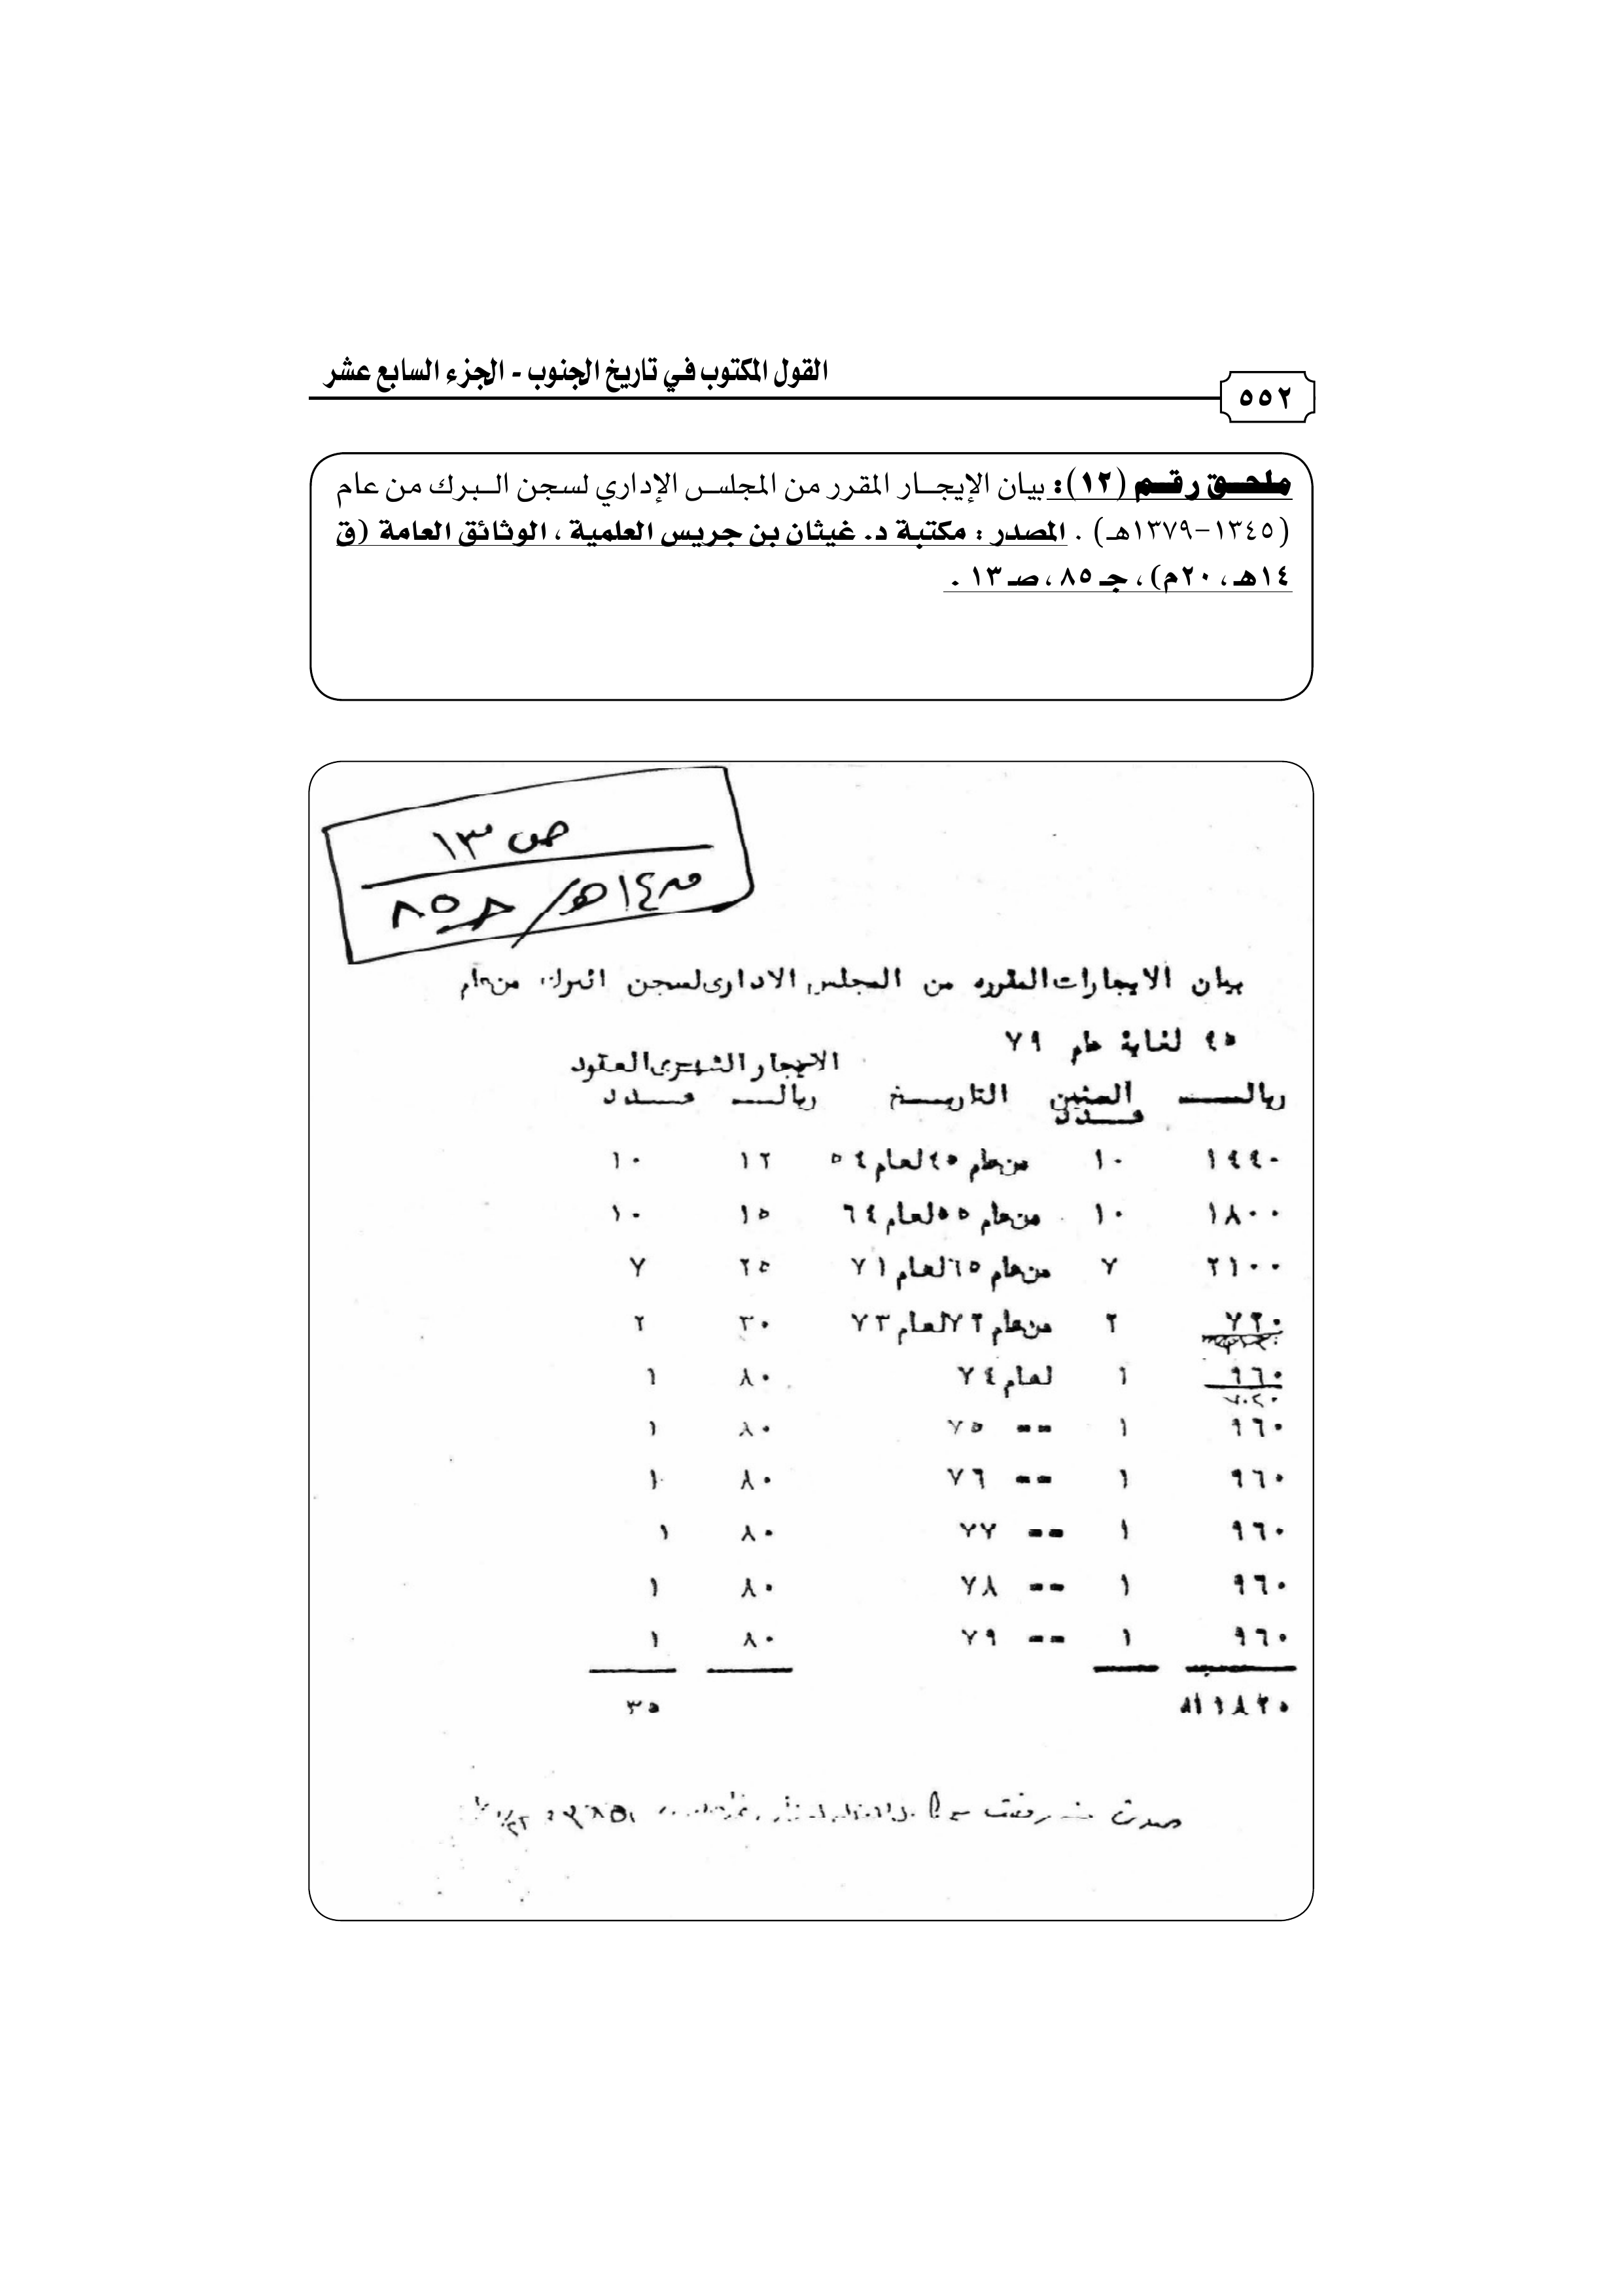 القول المكتوب في تاريخ الجنوب - الجزء السابع عشر
٥٥٢
ملحق رقم (١٢): بيان الإيجار المقرر من المجلس الإداري لسجن البرك من عام
(١٣٤٥-١٣٧٩هـ) . المصدر : مكتبة د. غيثان بن جريس العلمية ، الوثائق العامة (ق
١٤هـ ، ٢٠م) ، جـ ٨٥ ، صـ ١٣ .
ص ١٣
ق ١٤هـ / جـ ٨٥
بيان الايجارات المقرره من المجلس الادارى لسجن البرك من عام
٤٥ لغاية عام ٧٩
الايجار الشهرى العقود
ريال السنين التاريخ ريال عدد
عدد
١٤٤٠ ١٠ من عام ٤٥ لعام ٥٤ ١٢ ١٠
١٨٠٠ ١٠ من عام ٥٥ لعام ٦٤ ١٥ ١٠
٢١٠٠ ٧ من عام ٦٥ لعام ٧١ ٢٥ ٧
٧٢٠ ٢ من عام ٧٢ لعام ٧٣ ٣٠ ٢
٩٦٠ ١ لعام ٧٤ ٨٠ ١
٧٠٢٠
٩٦٠ ١ -- ٧٥ ٨٠ ١
٩٦٠ ١ -- ٧٦ ٨٠ ١
٩٦٠ ١ -- ٧٧ ٨٠ ١
٩٦٠ ١ -- ٧٨ ٨٠ ١
٩٦٠ ١ -- ٧٩ ٨٠ ١
٣٥